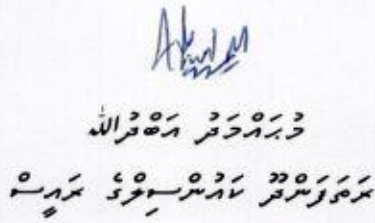 މުޙައްމަދު ޢަބްދުﷲ
ރަތަފަންދޫ ކައުންސިލްގެ ރައީސް